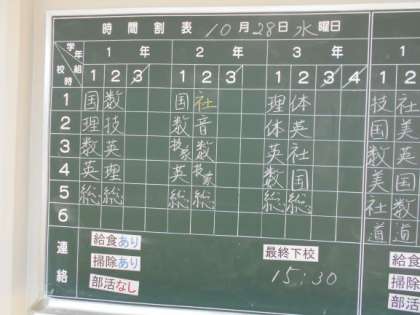 時間割表 10月28日 水曜日
学年 1年 2年 3年 1
校時 組 1 2 3 1 2 3 1 2 3 4 1 2
1 国 数 国 社 理 体 技 社
2 理 技 数 音 体 英 国 美
3 数 英 技家 数 英 社 数 英
4 英 理 英 技家 数 国 美 国
5 総 総 総 総 総 総 社 数
6 道 道
連絡
給食あり 最終下校 給食
掃除あり 15:30 掃除
部活なし 部活